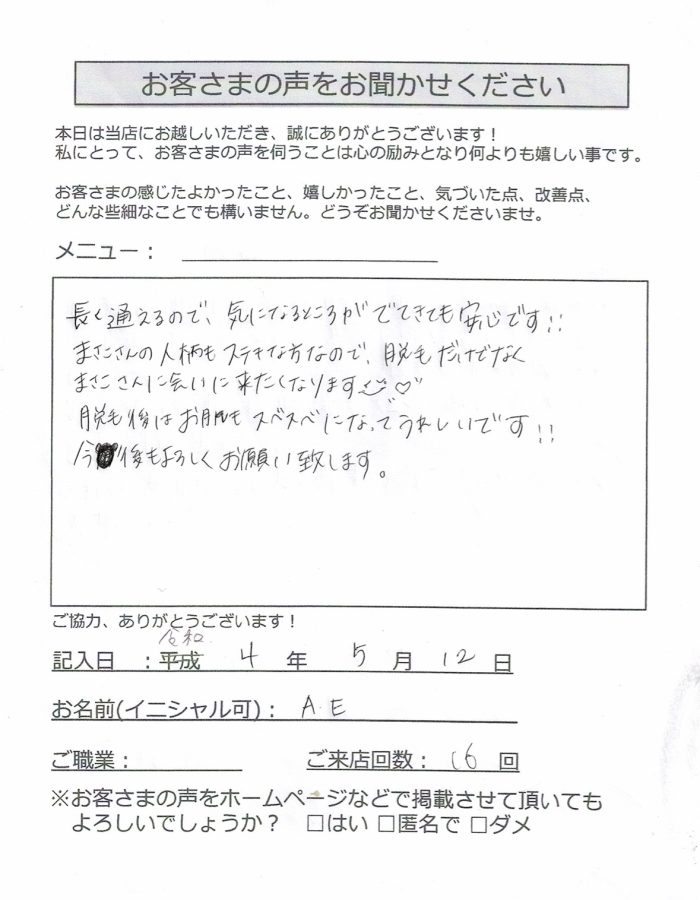 お客さまの声をお聞かせください
本日は当店にお越しいただき、誠にありがとうございます！
私にとって、お客さまの声を伺うことは心の励みとなり何よりも嬉しい事です。
お客さまの感じたよかったこと、嬉しかったこと、気づいた点、改善点、
どんな些細なことでも構いません。どうぞお聞かせくださいませ。
メニュー：
長く通えるので、気になるところがでてきても安心です!!
まさこさんの人柄もステキな方なので、脱毛だけでなく
まさこさんに会いに来たくなります♡
脱毛後はお肌もスベスベになってうれしいです!!
今後もよろしくお願い致します。
ご協力、ありがとうございます！
令和
記入日　：平成　4　年　5　月　12　日
お名前(イニシャル可)：　A.E
ご職業：　ご来店回数：　16　回
※お客さまの声をホームページなどで掲載させて頂いても
よろしいでしょうか？　□はい □匿名で □ダメ